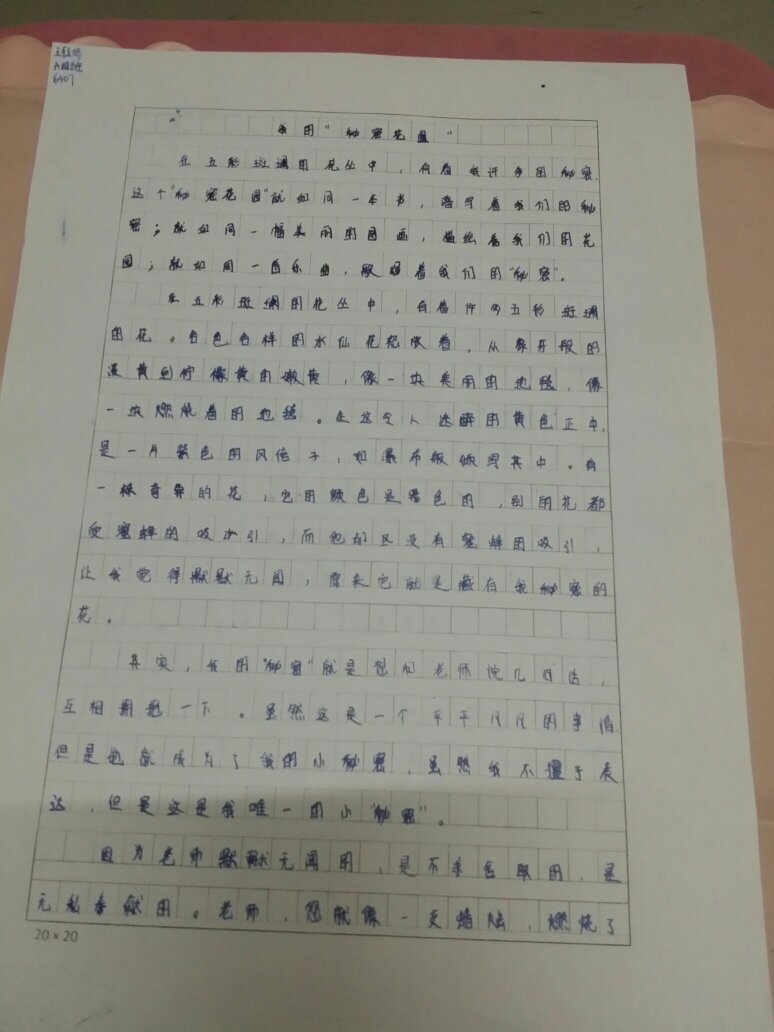 六四班
6407
我的"秘密花园"
在五彩斑斓的花丛中，有着我许多的秘密
这个"秘密花园"就如同一本书，谱写着我们的秘
密；就如同一幅美丽的图画，描绘着我们的花
园；就如同一首乐曲，歌唱着我们的"秘密"。
在五彩斑斓的花丛中，有着许多五彩斑斓
的花。各色各样的水仙花怒放着，从象牙般的
淡黄到柠檬黄的嫩黄，像一块美丽的地毯，像
一块燃烧着的地毯。在这令人迷醉的黄色正中，
是一片紫色的风信子，如瀑布般倾泻其中。有
一株奇异的花，它的颜色是墨色的，别的花都
受蜜蜂的吸引，而他却没有蜜蜂的吸引，
让我觉得默默无闻，原来它就是藏有我秘密的
花。
其实，我的"秘密"就是想和老师说几句话，
互相拥抱一下。虽然这是一个平平凡凡的事情，
但是她就成为了我的小秘密，虽然我不擅于表
达，但是这是我唯一的小"秘密"。
因为老师默默无闻的，是不求舍取的，是
无私奉献的。老师，您就像一支蜡烛，燃烧了
20×20